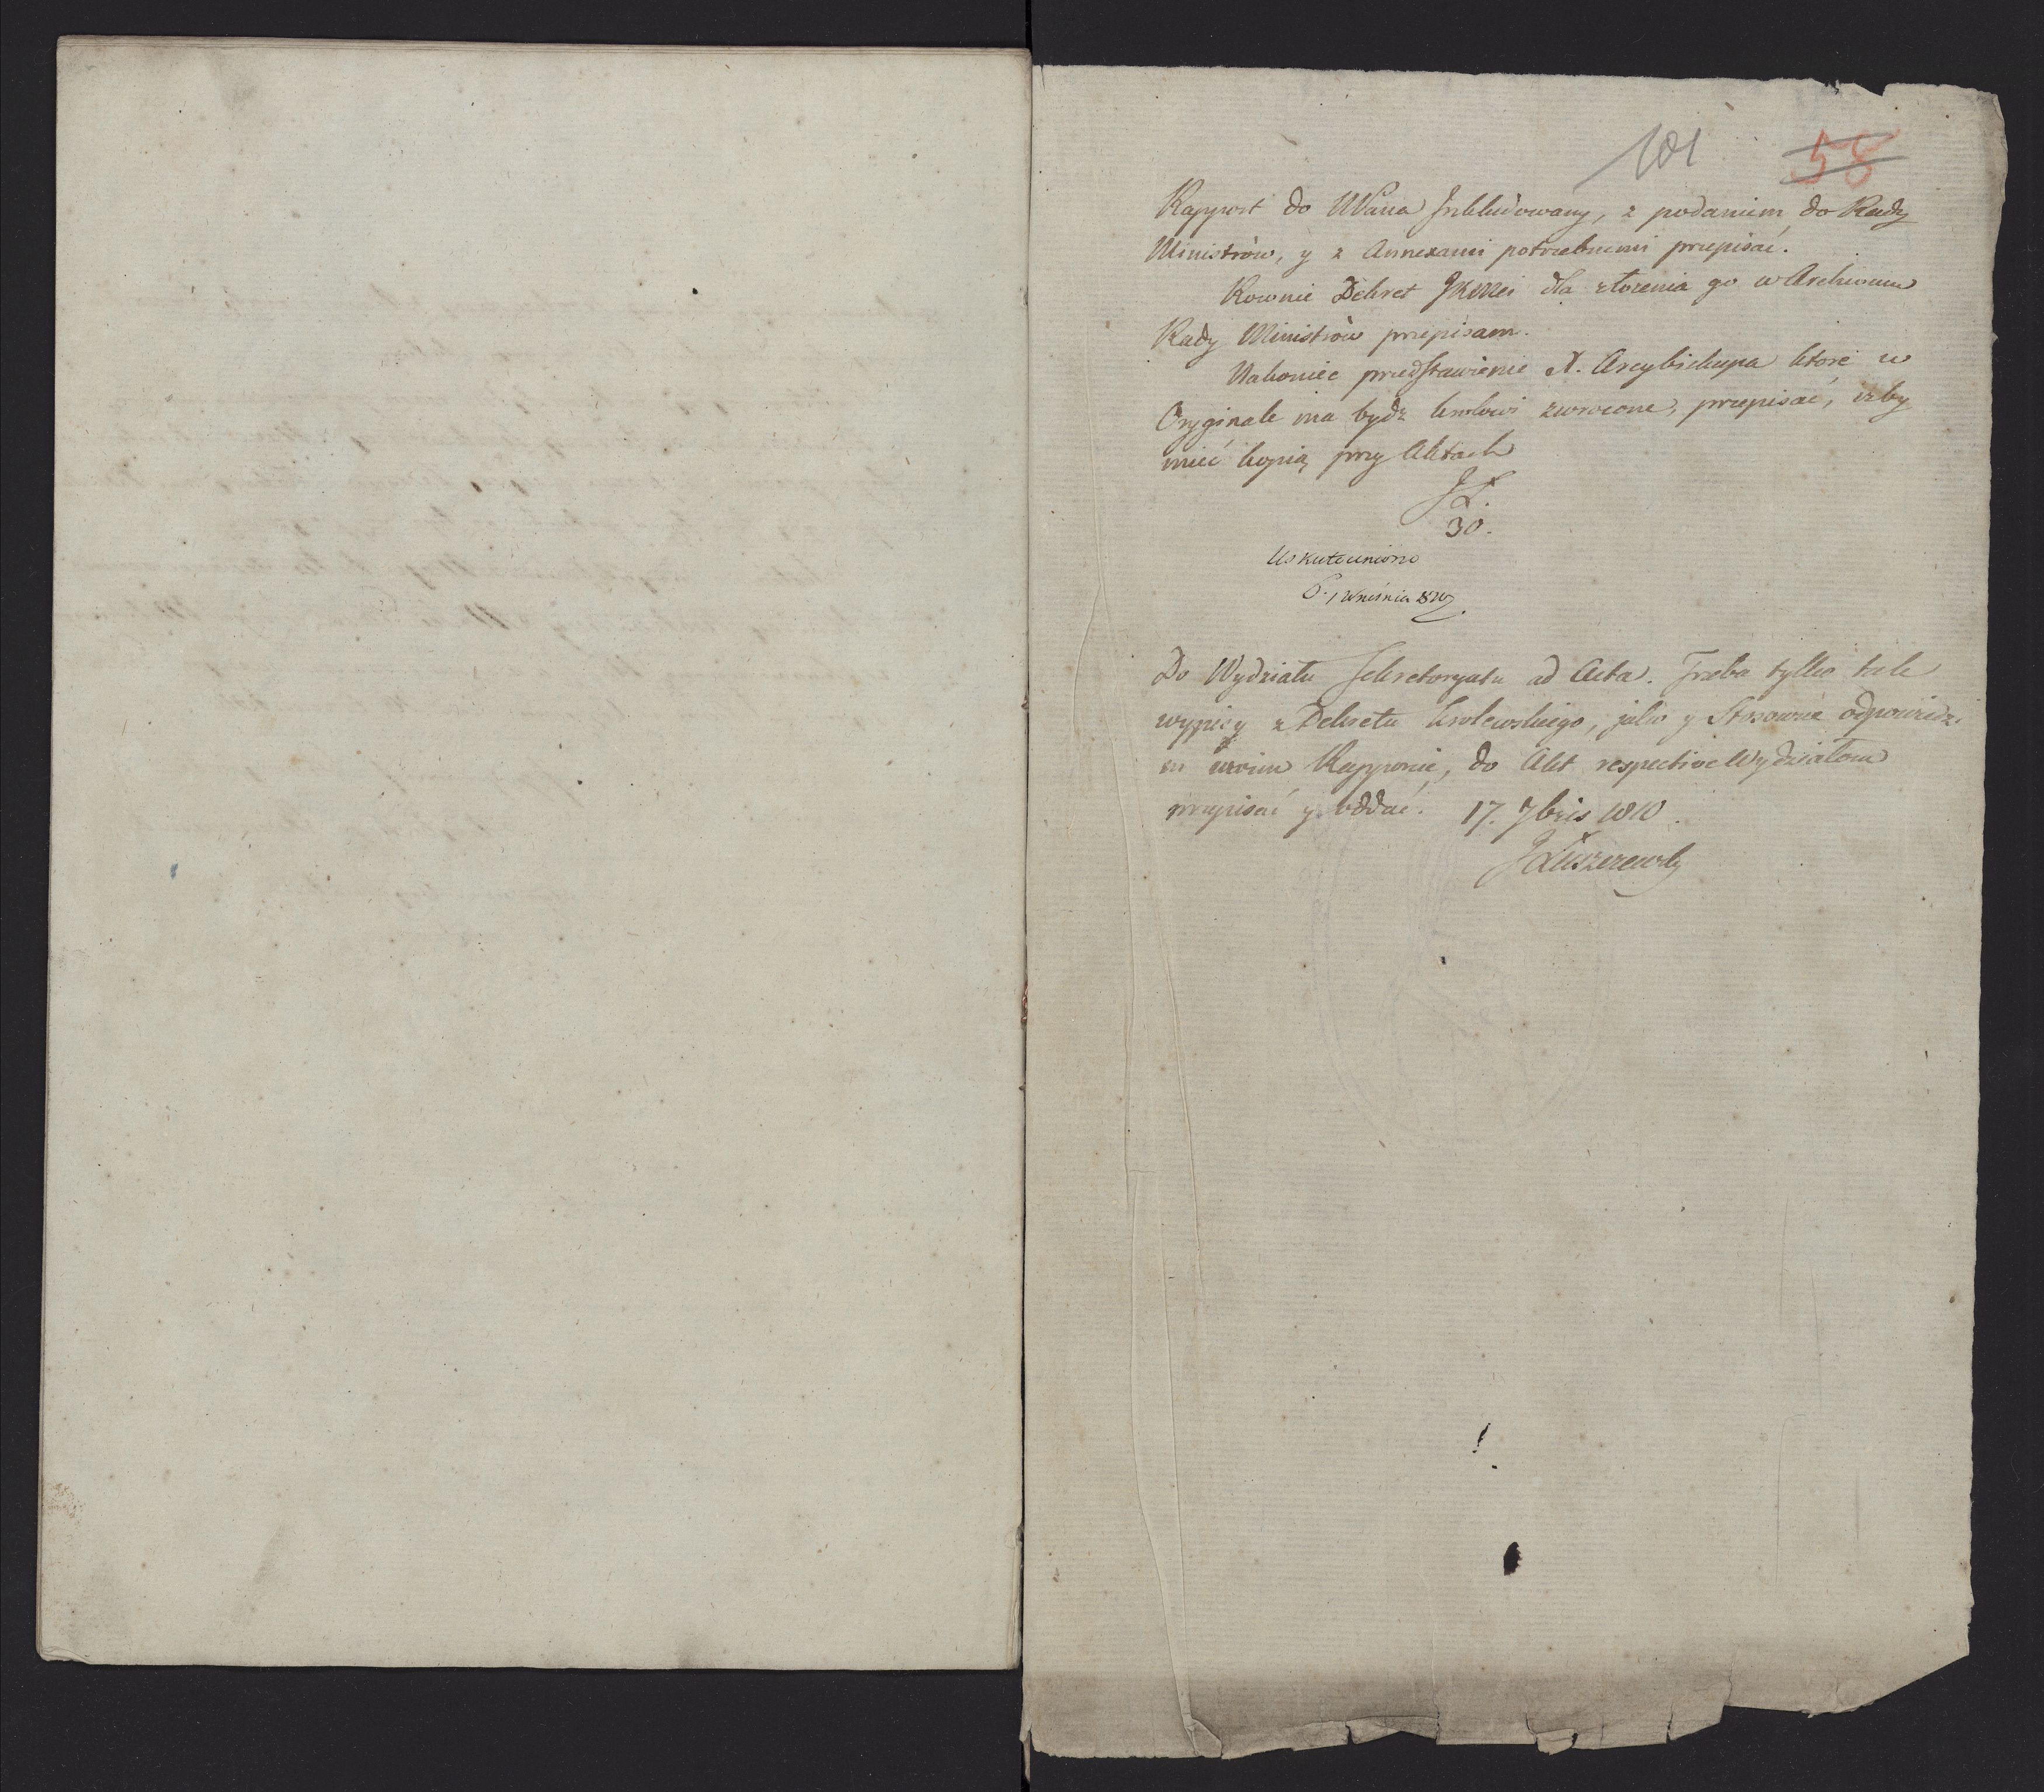 101 58
Rapport do NPana Inkludowany, z podaniem do Rady
Ministrów, y z Annexami potrzebnemi przepisać.
Rownie Dekret JKMci dla złożenia go w Archiwum
Rady Ministrów przepisam.
Nakoniec przedstawienie X. Arcybiskupa ktore w
Oryginale ma bydz krolowi zwrocone, przepisać, izby
mieć kopią przy Aktach
JŁ.
30.
Uskuteczniono
1 Września
Do Wydziału Sekretaryatu ad Acta. Trzeba tylko tak
wypisy z Dekretu krolewskiego, jako y Stosownie odpowiedz.
Rapporcie, do Akt respective Wydziałom
przepisać y oddać. 17. 7bris 1810.
JŁuszczewsky